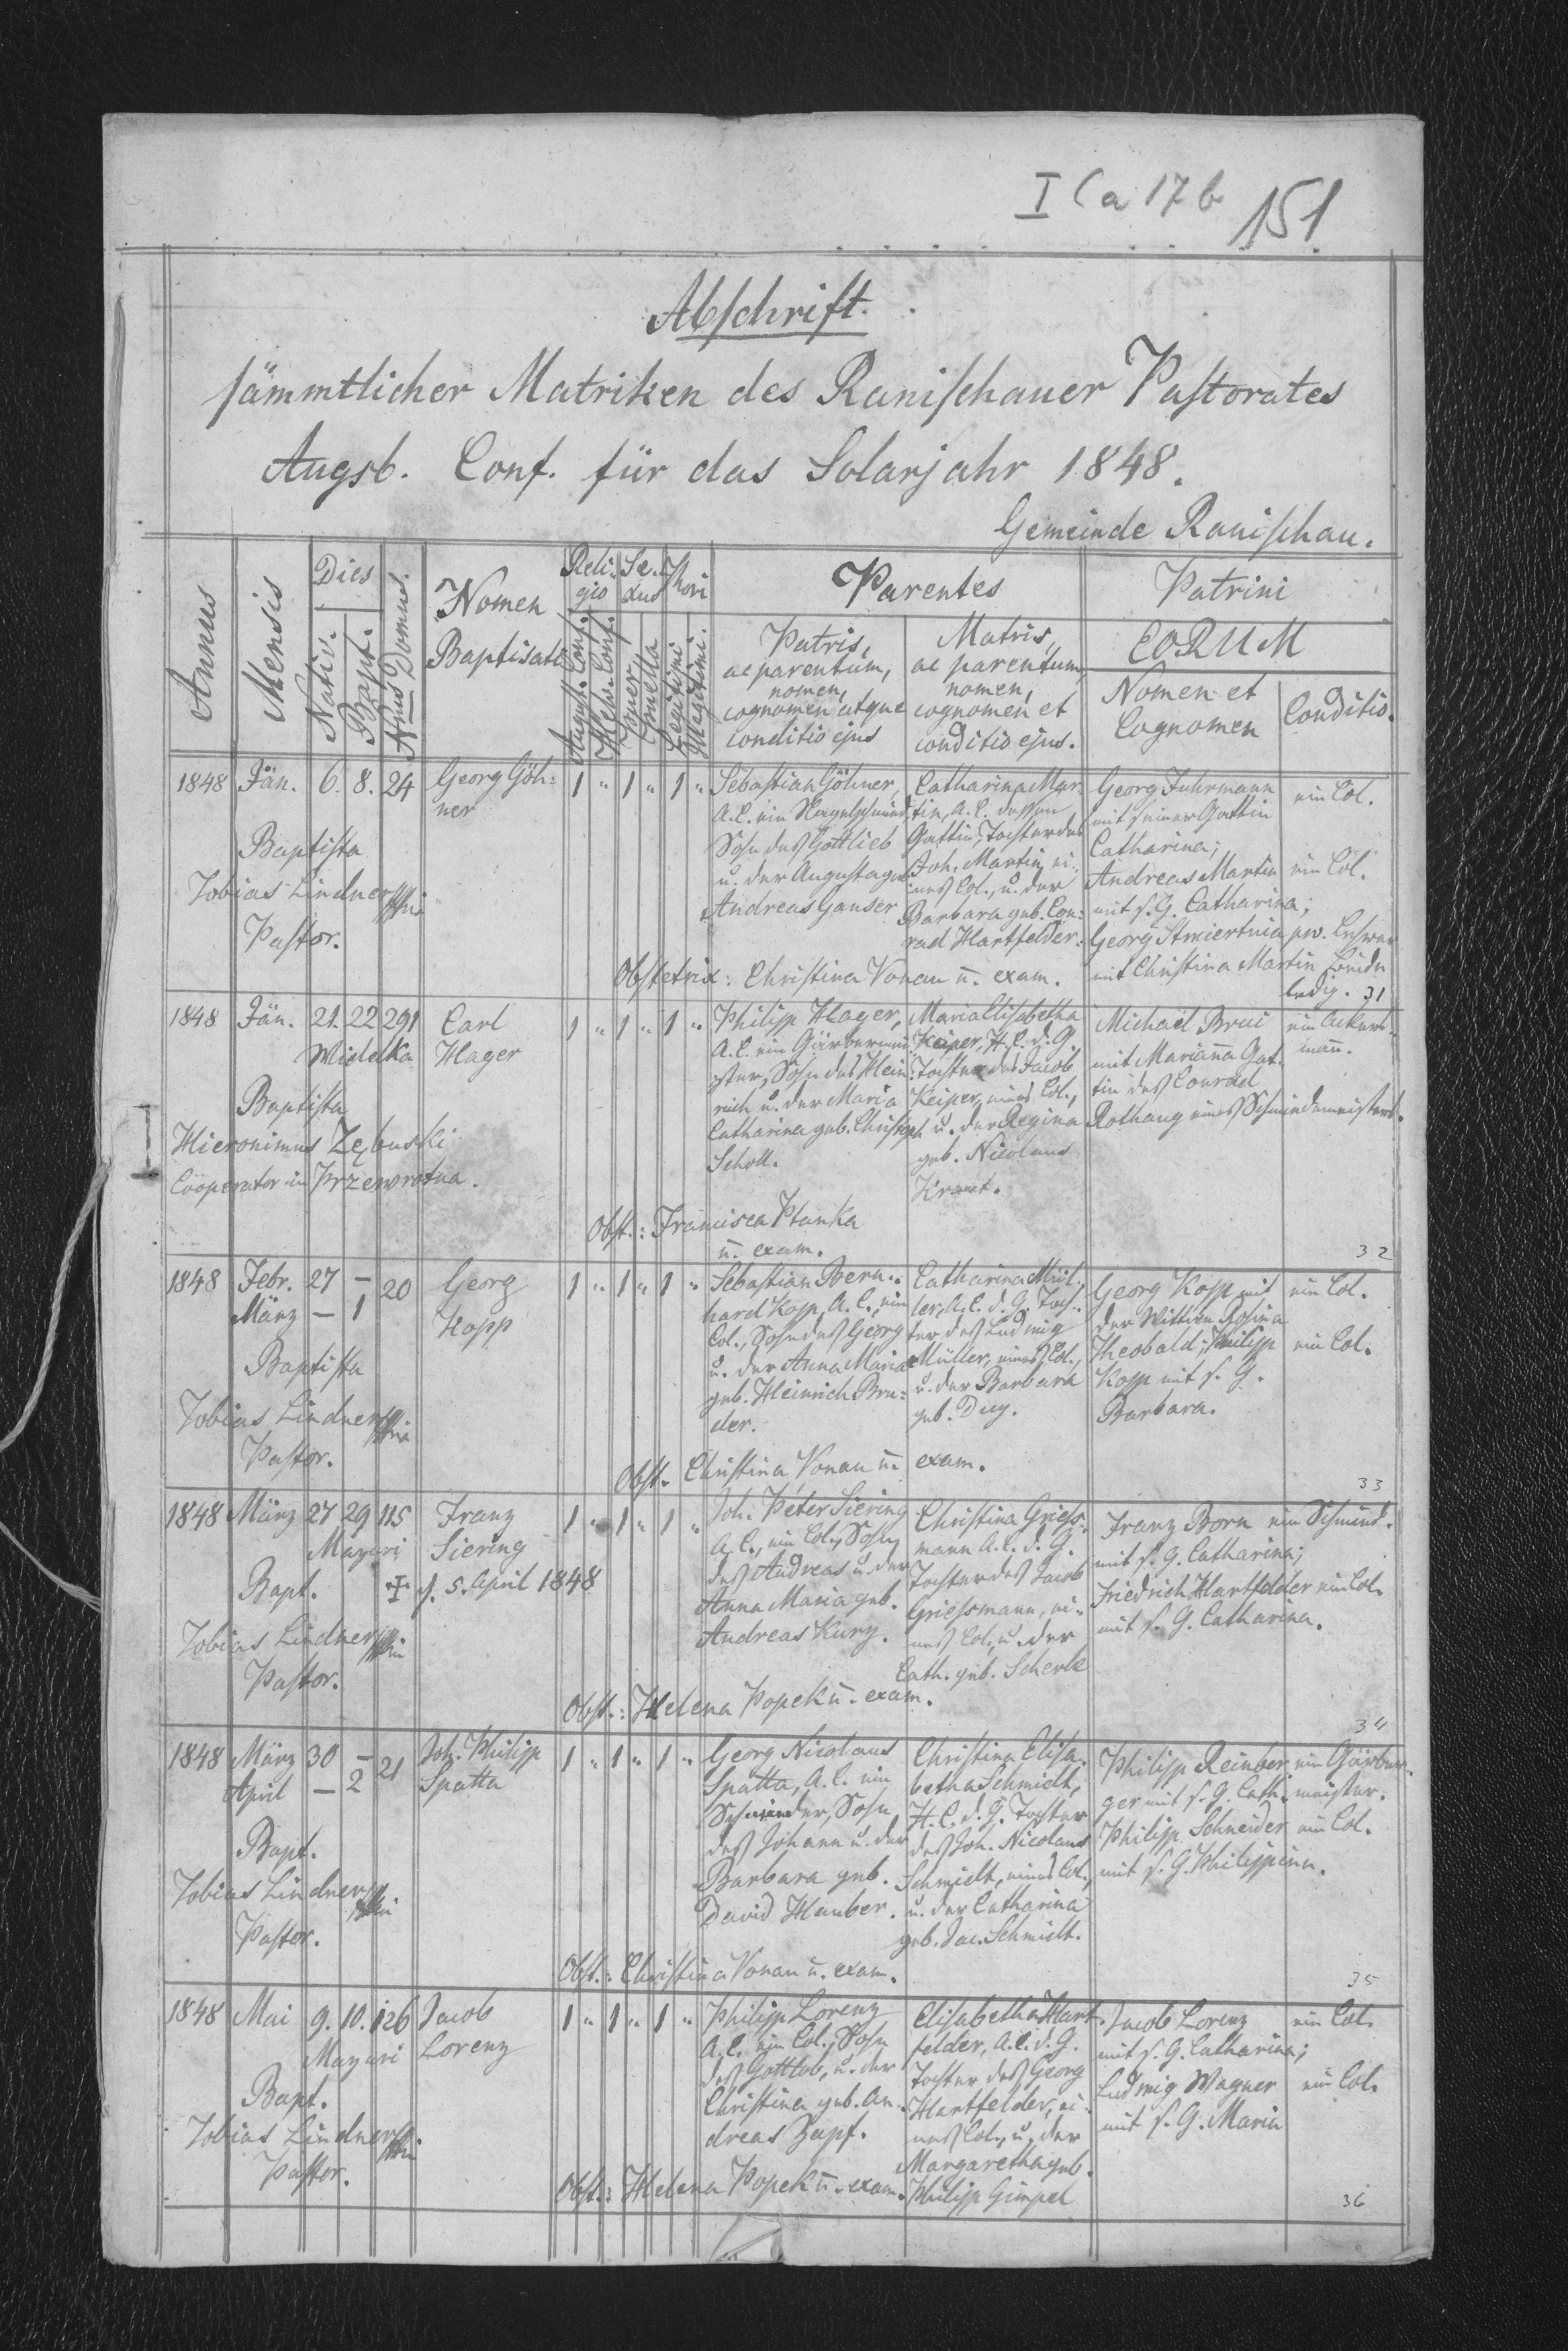 I C a 17 b 151
Abschrift.
sämmtlicher Matriken des Ranischauer Pastorates
Augsb. Conf. für das Solarjahr 1848.
Gemeinde Ranischau.
Annus
Mensis
Dies
Nativ.
Bapt.
Nrus Domus.
Nomen
Baptisati
Religio
August. Conf.
Helv. Conf.
Sexus
Puer
Puella
Thori
Legitimi
Illegitimi.
Parentes
Patris,
ac parentum,
nomen,
cognomen atque
conditio ejus
Matris,
ac parentum,
nomen,
cognomen et
conditio ejus.
Patrini
EORUM
Nomen et
Cognomen
Conditio.
1848 Jän. 6. 8. 24
Baptista
Tobias Lindner
Pastor.
Georg Göh=
ner
1 " 1 " 1 "
Sebastian Göhner,
A. C. ein Nagelschmied,
Sohn des Gottlieb
u. der Augusta geb.
Andreas Ganser
Catharina Mar=
tin, A. C. dessen
Gattin, Tochter des
Joh. Martin, ei=
nes Col., u. der
Barbara geb. Con=
rad Hartfelder.
Georg Fuhrmann
mit seiner Gattin
Catharina;
Andreas Martin
mit s. G. Catharina;
Georg Smiertnia
mit Christina Martin
ein Col.
ein Col.
ledig. 31
Obstetrix: Christina Vonau u. exam.
1848 Jän. 21. 22 291
Widelka
Baptista
Hieronimus Zębuski
Cooperator in Przewrotna.
Carl
Hager
1 " 1 " 1 "
Philipp Hager,
A. C. ein Gärbermei=
ster, Sohn des Hein=
rich u. der Maria
Catharina geb. Christoph
Scholl.
Maria Elisabetha
Keiper, H. C. d. G.
Tochter des Jacob
Keiper, eines Col.,
u. der Regina
geb. Nicolaus
Kraut.
Michael Brui
mit Marianna Gat=
tin des Conrad
Rothaug eines Schmiedemeisters.
ein Ackers=
mann.
Obst.: Francisca Ptanka
u. exam.
32
1848 Febr. 27 – 20
März – 1
Baptista
Tobias Lindner
Pastor.
Georg
Kopp
1 " 1 " 1 "
Sebastian Bern=
hard Kopp, A. C., ein
Col., Sohn des Georg
u. der Anna Maria
geb. Heinrich Bru=
der.
Catharina Mül=
ler, A. C. d. G. Toch=
ter des Ludwig
Müller, eines Col.,
u. der Barbara
geb. Duy.
Georg Kopp mit
der Wittwe Rosina
Theobald; Philipp
Kopp mit s. G.
Barbara.
ein Col.
ein Col.
Obst. Christina Vonau u. exam.
33
1848 März 27 29 115
Mazuri
Bapt.
d. 5. April 1848
Tobias Lindner
Pastor.
Franz
Siering
1 " 1 " 1 "
Joh. Peter Siering
A. C., ein Col., Sohn
des Andreas u. der
Anna Maria geb.
Andreas Kury.
Christina Griess=
mann A. C. d. G.
Tochter des Jacob
Griessmann, ei=
nes Col., u. der
Cath. geb. Scherle
Franz Born ein Schmied.
mit s. G. Catharina;
Friedrich Hartfelder ein Col.
mit s. G. Catharina.
Obst.: Helena Popek u. exam.
34
1848 März 30 – 21
April – 2
Bapt.
Tobias Lindner
Pastor.
Joh. Philipp
Spatta
1 " 1 " 1 "
Georg Nicolaus
Spatta, A. C. ein
Schneider, Sohn
des Johann u. der
Barbara geb.
David Hauber.
Christina Elisa=
betha Schmidt,
H. C. d. G. Tochter
des Joh. Nicolaus
Schmidt, eines Col.,
u. der Catharina
geb. Jac. Schmidt.
Philipp Reinber=
ger mit s. G. Cath.
Philipp Schneider
mit s. G. Philippina.
ein Gärber=
meister.
ein Col.
Obst.: Christina Vonau u. exam.
35
1848 Mai 9. 10. 126
Mazuri
Bapt.
Tobias Lindner
Pastor.
Jacob
Lorenz
1 " 1 " 1 "
Philipp Lorenz
A. C. ein Col., Sohn
des Gottlob, u. der
Christina geb. An=
dreas Zapf.
Elisabetha Hart=
felder, A. C. d. G.
Tochter des Georg
Hartfelder, ei=
nes Col., u. der
Margaretha geb.
Philipp Gimpel
Jacob Lorenz
mit s. G. Catharina;
Ludwig Wagner
mit s. G. Maria
ein Col.
ein Col.
Obst.: Helena Popek u. exam.
36